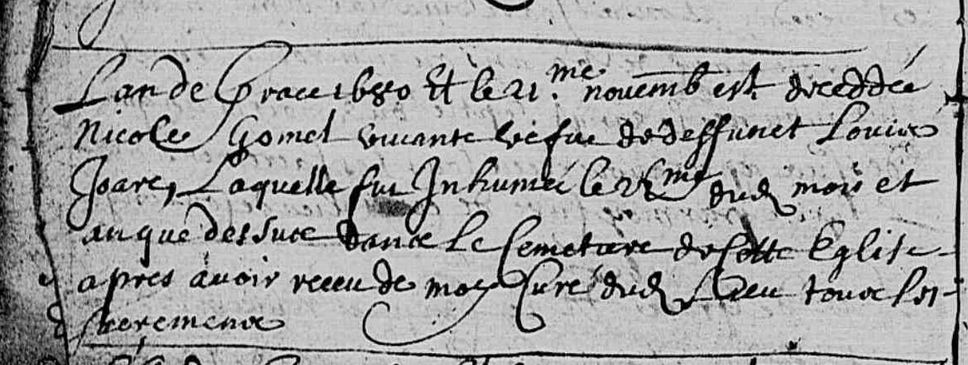 Lan de Grace 1680 Et le 21.me novemb est deceddée
Nicole Gomel vivante vefue de deffunct Louis
Joare, Laquelle fut Inhumée le 22me dud mois et
an que dessus dans Le Cemetiere de Cette Eglise
apres avoir receu de moy Curé dud Lieu tous les
sacremens